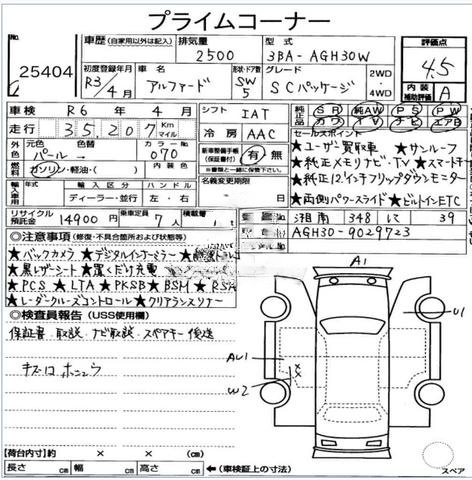 プライムコーナー
25404
車歴 (自家用以外は記入) 排気量 2500 型式 3BA-AGH30W
初度登録年月 R3/4月 車名 アルファード 形状・ドア数 SW 5 グレード SCパッケージ 2WD 4WD
評価点 4.5
内装補助評価 A
車検 R6年4月
走行 35207 Km マイル
シフト IAT
冷房 AAC
純正品 SR 純AW PS PW カワ TV ナビ エアB
外色 元色 パール 色替 カラーNo 070
燃料 ガソリン・軽油・( )
新車整備手帳(保証書付) 有・無
※書類と一緒に保管して下さい。
輸入車 年 月 輸入区分 ディーラー・並行 ハンドル 左・右
名義変更期限
リサイクル預託金 14900円 乗車定員 7人 積載量 t
セールスポイント
★ユーザー買取車 ★サンルーフ
★純正メモリナビ・TV ★スマートキー
★純正12インチフリップダウンモニター
★両側パワースライド ★ビルトインETC
湘南 348 に 39
AGH30-9029723
◎注意事項 (修復・不具合箇所および状態等)
★バックカメラ ★デジタルインナーミラー
★黒レザーシート ★置くだけ充電
★PCS ★LTA ★PKSB ★BSM ★RSA
★レーダークルーズコントロール ★クリアランスソナー
◎検査員報告 (USS使用欄)
保証書 取説 ナビ取説 スペアキー 後送
キズ
A1
U1
AU1
W2
【荷台内寸】約 × × (cm)
長さ cm 幅 cm 高さ cm ←(車検証上の寸法)
スペア